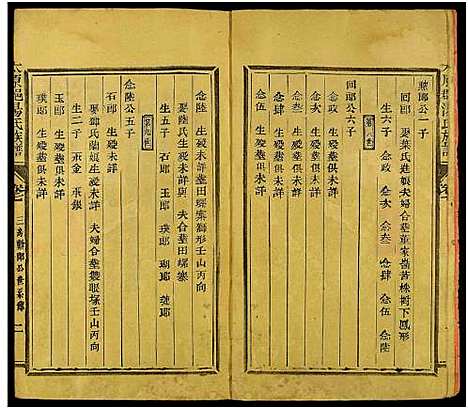 郎公一子
回郎 娶葉氏進娘夫婦合塟董家嶺苦株樹下鳳形
生六子 念政 念次 念叁 念肆 念伍 念陸
回郎公六子
念政 生殁塟俱未詳
念次 生殁塟俱未詳
念叁 生殁塟俱未詳
念肆 生殁塟俱未詳
念伍 生殁塟俱未詳
念陸 生殁未詳塟田塅獅形壬山丙向
娶陸氏生殁未詳與夫合塟田塅
生五子 石郎 玉郎 璞郎 瑚郎 璉郎
第九世
念陸公五子
石郎 生殁塟俱未詳
娶鄧氏蘭娘生殁未詳 夫婦合塟雙眼塚壬山丙向
生二子 禾金 禾銀
玉郎 生殁塟俱未詳
璞郎 生殁塟俱未詳
湯氏族譜
卷之
三
郎公世系
二